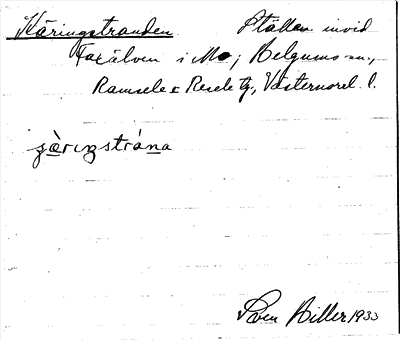 Käringstranden Ställen invid
Faxälven i Mo, Helgums sn.,
Ramsele o Resele tg, Västernorrl. l.
Sven Hiller 1933